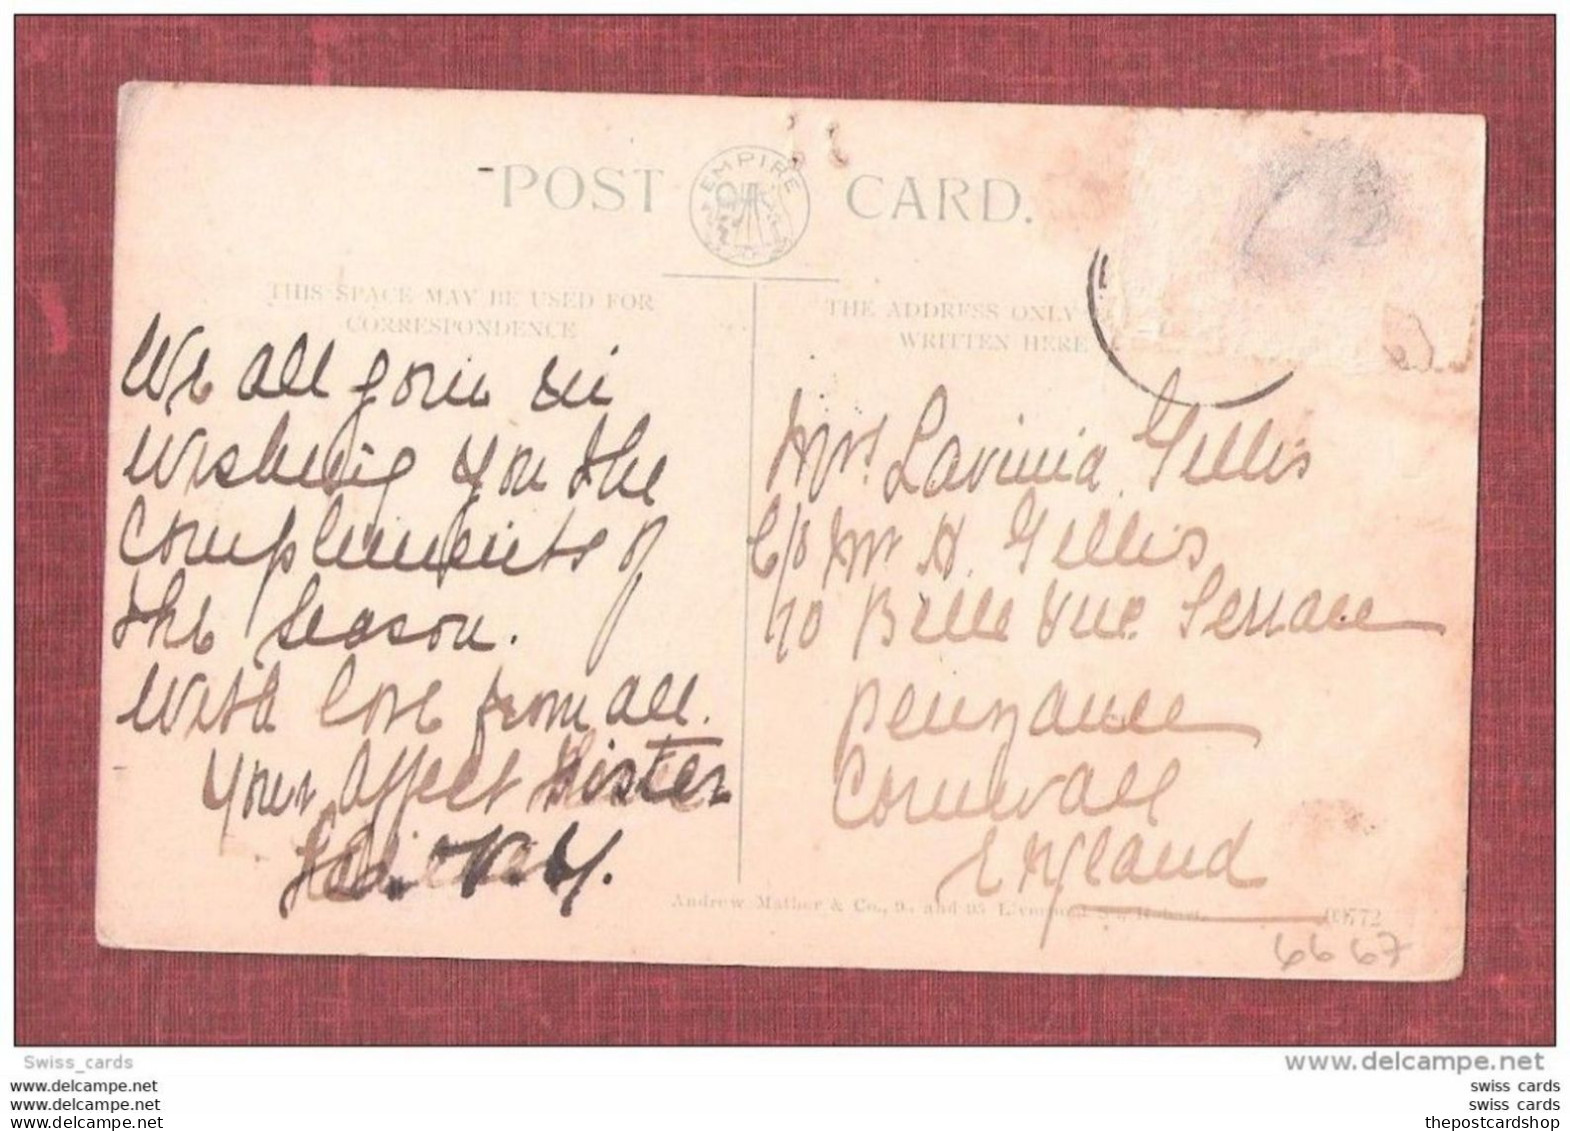 POST CARD.
EMPIRE
THIS SPACE MAY BE USED FOR
CORRESPONDENCE
THE ADDRESS ONLY
WRITTEN HERE
We all join in
wishing you the
Compliments of
the Season.
With love from all.
Your Affect Sister
Mrs Lavinia Gillis
C/o Mr H Gillis
70 Belle Vue Terrace
Penzance
Cornwall
England
Andrew Mather & Co., and 95 Liverpool St., Hobart.
6667
Swiss_cards
www.delcampe.net
www.delcampe.net
www.delcampe.net
www.delcampe.net
swiss cards
swiss cards
thepostcardshop